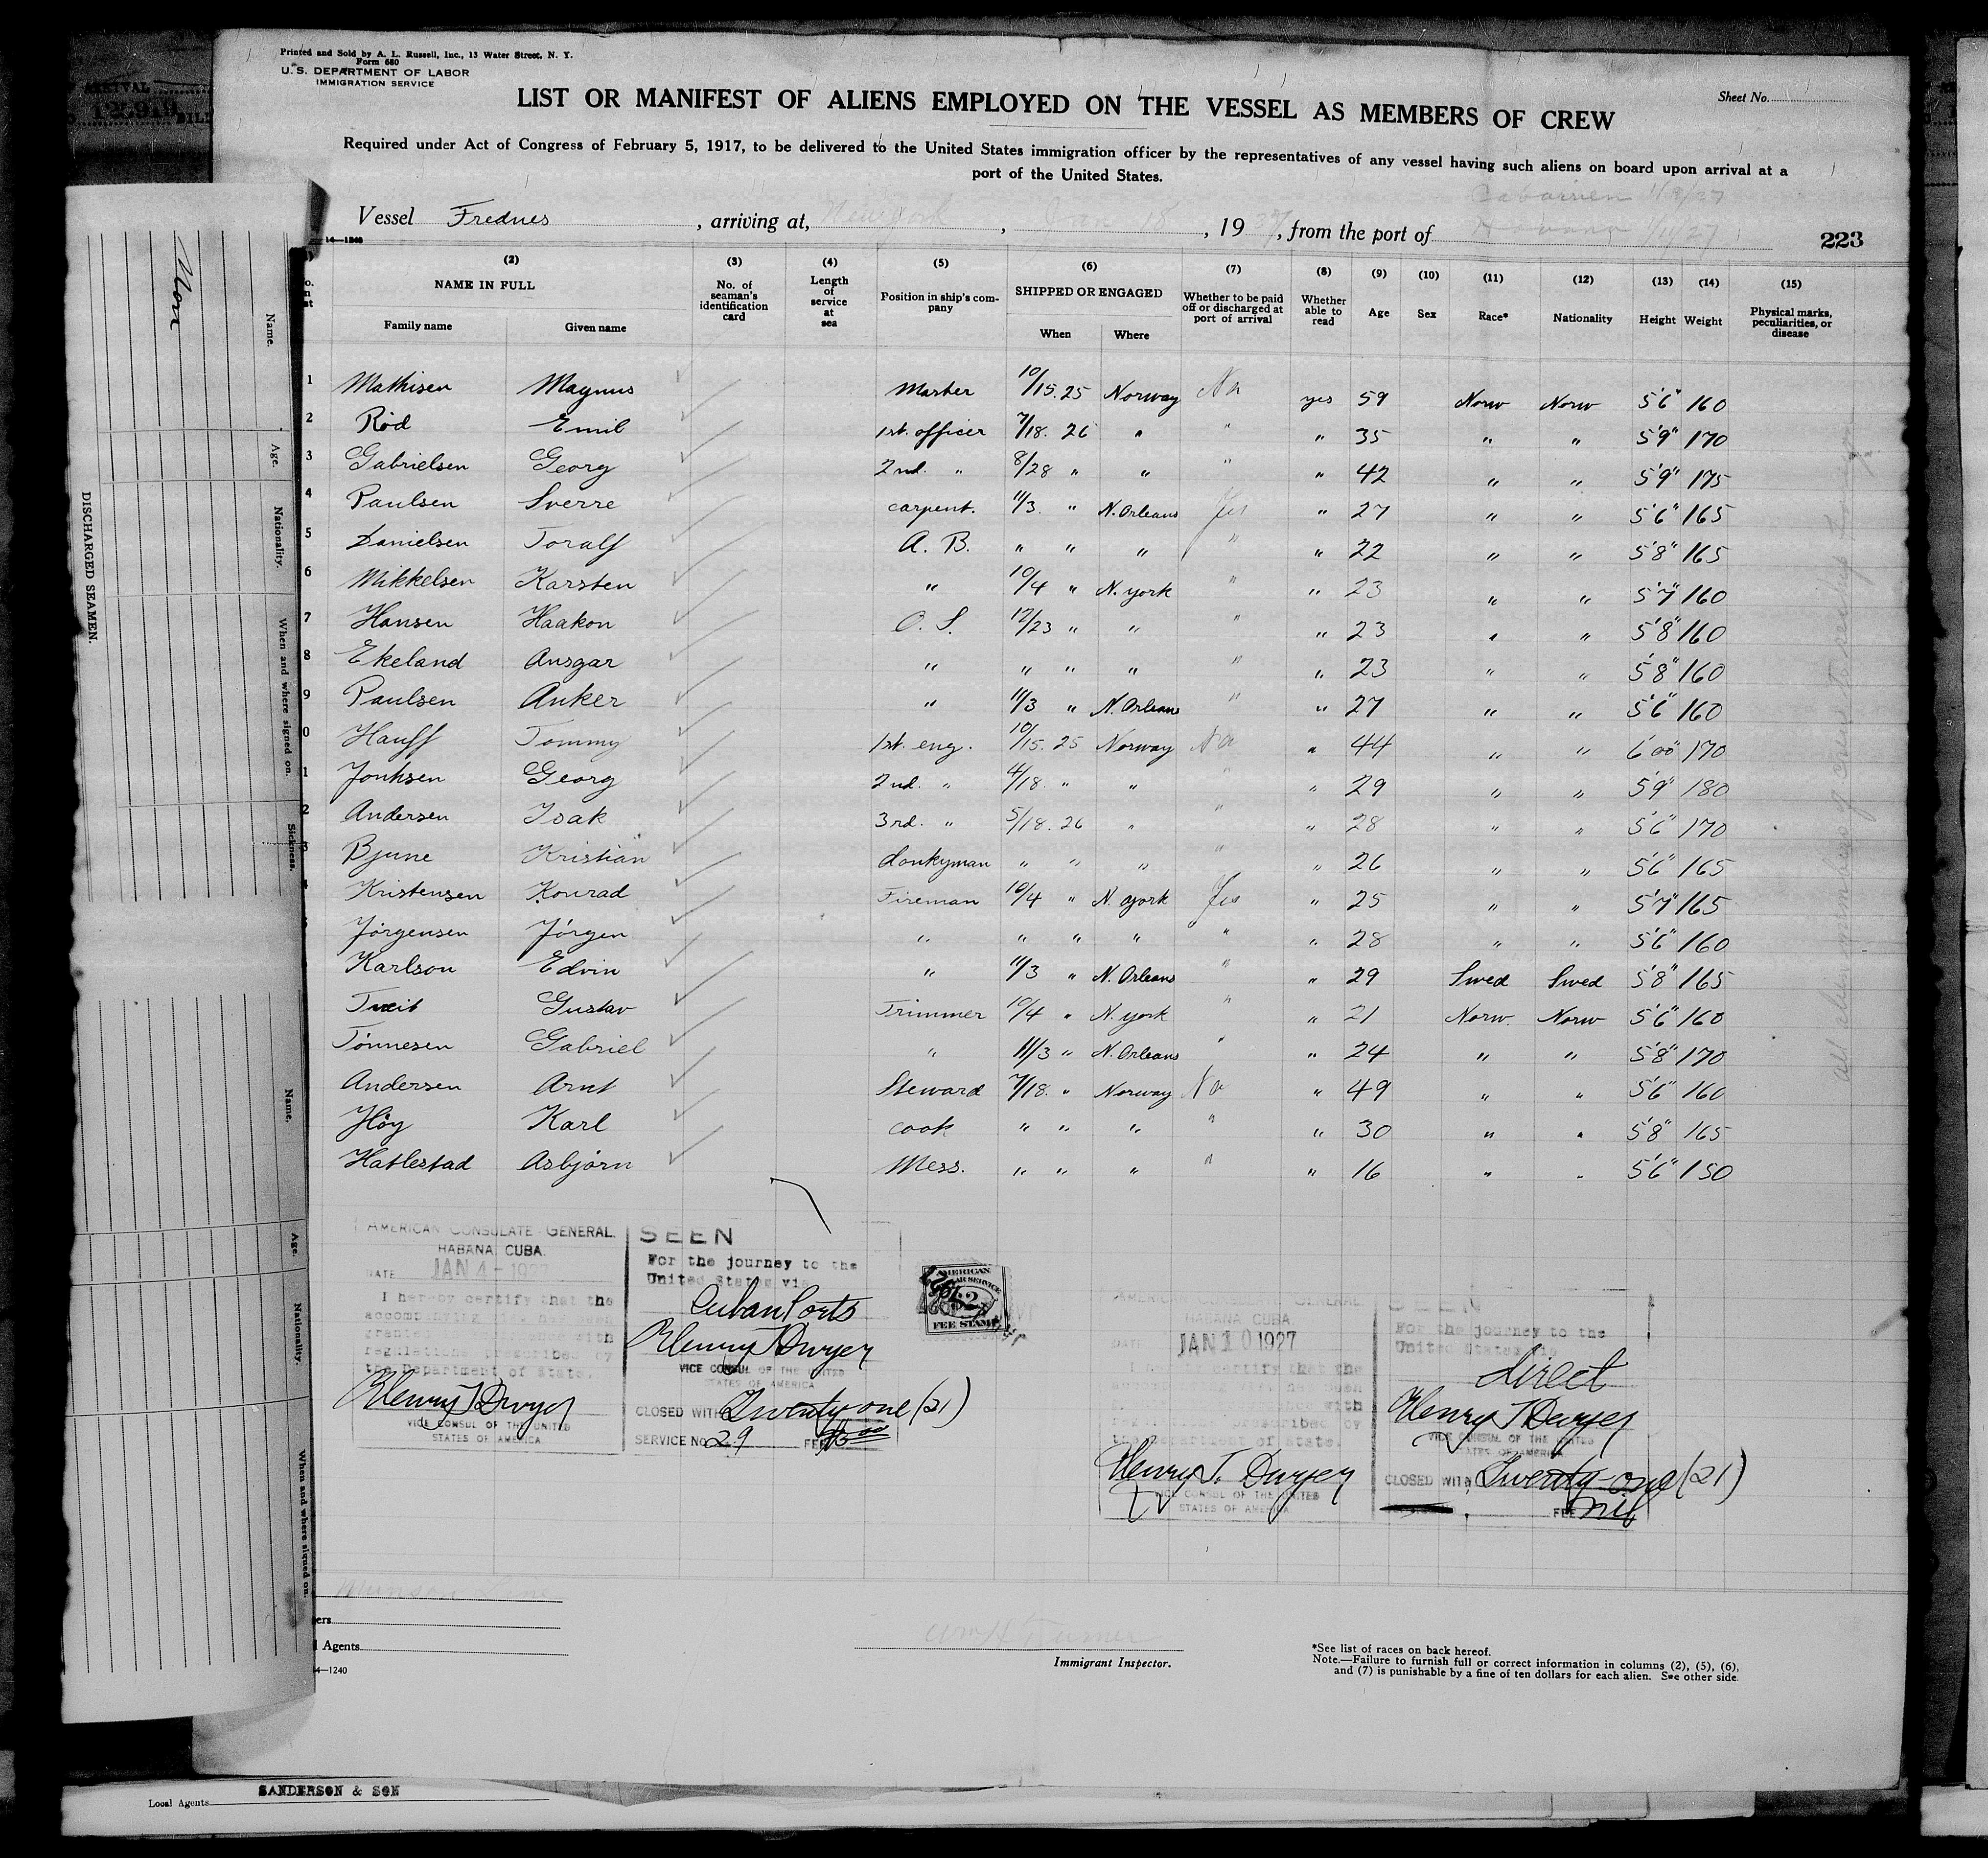 Printed and Sold by A. L. Russell, Inc., 13 Water Street, N. Y.
Form 680
U. S. DEPARTMENT OF LABOR
IMMIGRATION SERVICE
Sheet No.
LIST OR MANIFEST OF ALIENS EMPLOYED ON THE VESSEL AS MEMBERS OF CREW
Required under Act of Congress of February 5, 1917, to be delivered to the United States immigration officer by the representatives of any vessel having such aliens on board upon arrival at a
port of the United States.
Caibarien 1/8/27
Vessel Frednes, arriving at, New york, Jan 18, 1927, from the port of Havana 1/11/27
223
14—1240
(2) (3) (4) (5) (6) (7) (8) (9) (10) (11) (12) (13) (14) (15)
NAME IN FULL No. of seaman's identification card Length of service at sea Position in ship's company SHIPPED OR ENGAGED Whether to be paid off or discharged at port of arrival Whether able to read Age Sex Race* Nationality Height Weight Physical marks, peculiarities, or disease
Family name Given name When Where
1 Mathisen Magnus Master 10/15.25 Norway No yes 59 Norw Norw 5'6" 160
2 Röd Emil 1st. officer 7/18. 26 " " " 35 " " 5'9" 170
3 Gabrielsen Georg 2nd. " 8/28 " " " " 42 " " 5'9" 175
4 Paulsen Sverre carpent. 11/3. " N. Orleans Yes " 27 " " 5'6" 165
5 Danielsen Toralf A. B. " " " " " 22 " " 5'8" 165
6 Mikkelsen Karsten " 10/4 " N. york " " 23 " " 5'7 160
7 Hansen Haakon O. S. 12/23 " " " " 23 " " 5'8" 160
8 Ekeland Ansgar " " " " " " 23 " " 5'8" 160
9 Paulsen Anker " 11/3 " N. Orleans " " 27 " " 5'6" 160
0 Hauff Tommy 1st. eng. 10/15. 25 Norway No " 44 " " 6'00" 170
1 Jonhsen Georg 2nd. " 4/18. " " " " 29 " " 5'9" 180
2 Andersen Isak 3rd. " 5/18. 26 " " " 28 " " 5'6" 170
3 Bjune Kristian donkyman " " " " " 26 " " 5'6" 165
Kristensen Konrad Fireman 10/4 " N. york Yes " 25 " " 5'7" 165
Jörgensen Jörgen " " " " " " 28 " " 5'6" 160
Karlson Edvin " 11/3 " N. Orleans " " 29 Swed Swed 5'8" 165
Tveit Gustav Trimmer 10/4 " N. york " " 21 Norw. Norw 5'6" 160
Tönnesen Gabriel " 11/3 " N. Orleans " " 24 " " 5'8" 170
Andersen Arnt Steward 7/18. " Norway No " 49 " " 5'6" 160
Höy Karl cook " " " " " 30 " " 5'8" 165
Hatlestad Asbjörn Mess. " " " " " 16 " " 5'6" 150
AMERICAN CONSULATE GENERAL.
HABANA CUBA.
DATE JAN 4 - 1927
I hereby certify that the
accompanying
granted with
regulations prescribed by
the Department of State.
Henry T Dwyer
VICE CONSUL OF THE UNITED
STATES OF AMERICA
SEEN
For the journey to the
United States via
Cuban Ports
Henry T Dwyer
VICE CONSUL OF THE UNITED
STATES OF AMERICA
CLOSED WITH Twenty-one (21)
SERVICE No. 29 FEE
AMERICAN
SERVICE
2
FEE STAMP
GENERAL
HABANA CUBA
DATE JAN 10 1927
I certify that the
with
prescribed by
the Department of State.
Henry T. Dwyer
VICE CONSUL OF THE UNITED
STATES OF AMERICA
SEEN
For the journey to the
United States via
direct
Henry T Dwyer
VICE CONSUL OF THE UNITED
STATES OF AMERICA
CLOSED WITH Twenty-one (21)
FEE nil
all alien members of crew to reship foreign
Munson Line
ers
l Agents
4—1240
Wm H Turner
Immigrant Inspector.
*See list of races on back hereof.
Note.—Failure to furnish full or correct information in columns (2), (5), (6),
and (7) is punishable by a fine of ten dollars for each alien. See other side.
DISCHARGED SEAMEN.
Name.
Age.
Nationality.
When and where signed on.
Sickness.
Name.
Age.
Nationality.
When and where signed on.
ARRIVAL
SANDERSON & SON
Local Agents